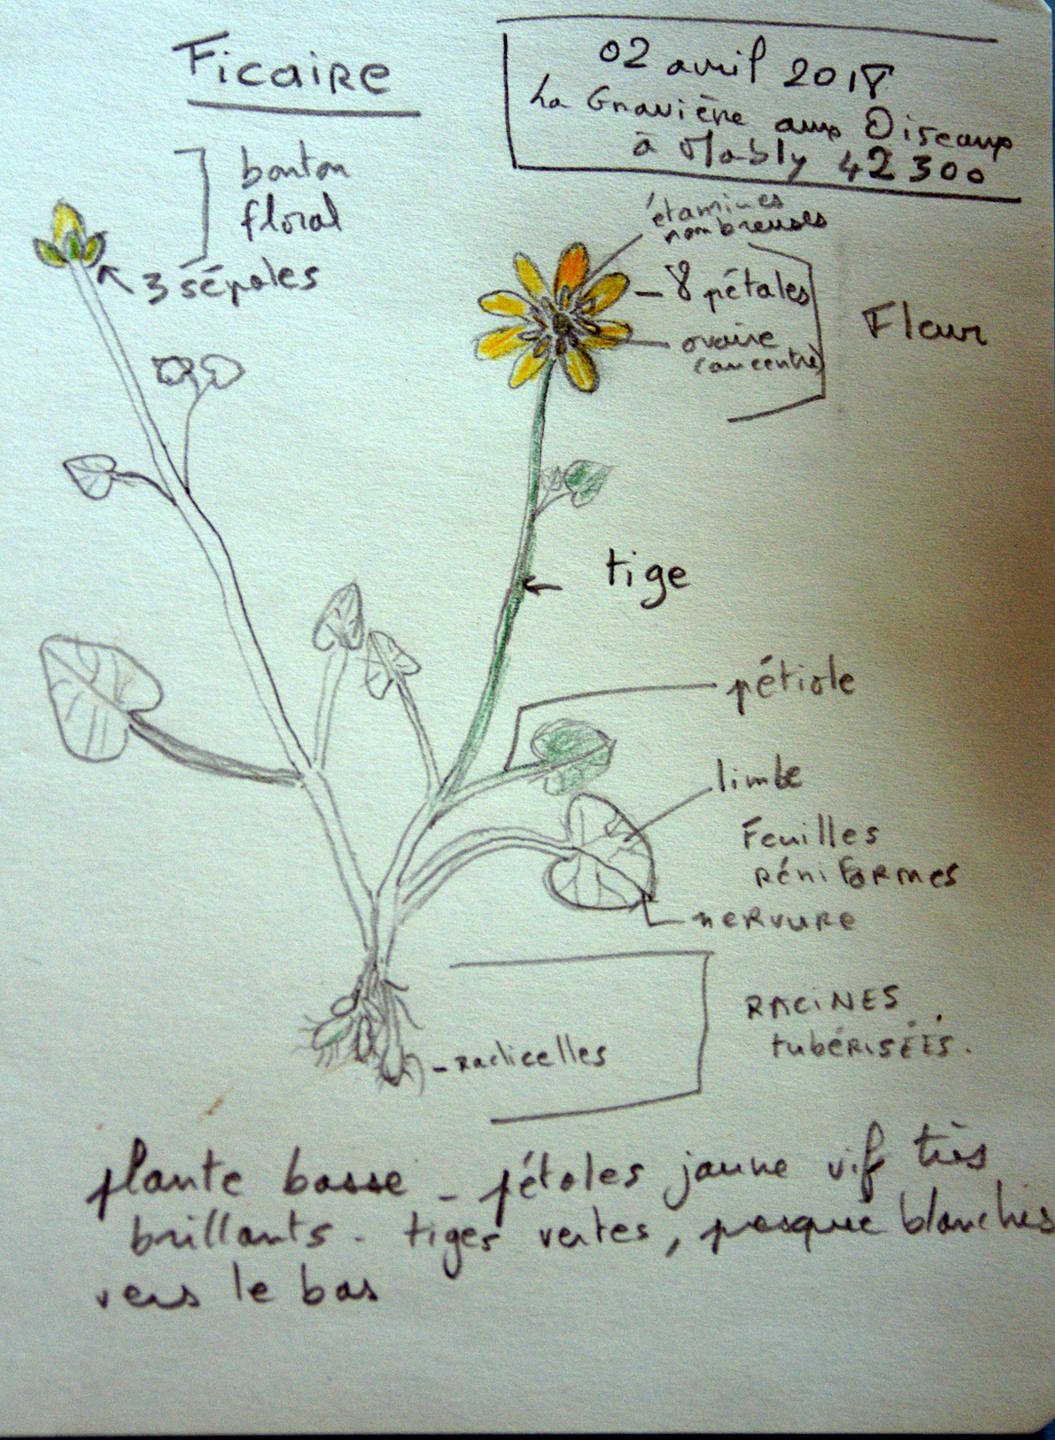 Ficaire
02 avril 2018
La Gravière aux Oiseaux
à Mably 42300
bouton
floral
3 sépales
étamines
nombreuses
8 pétales
ovaire
Fleur
tige
pétiole
limbe
Feuilles
réniformes
nervure
RACINES
tubérisées.
radicelles
plante basse - pétales jaune vif très
brillants. tiges vertes, presque blanches
vers le bas